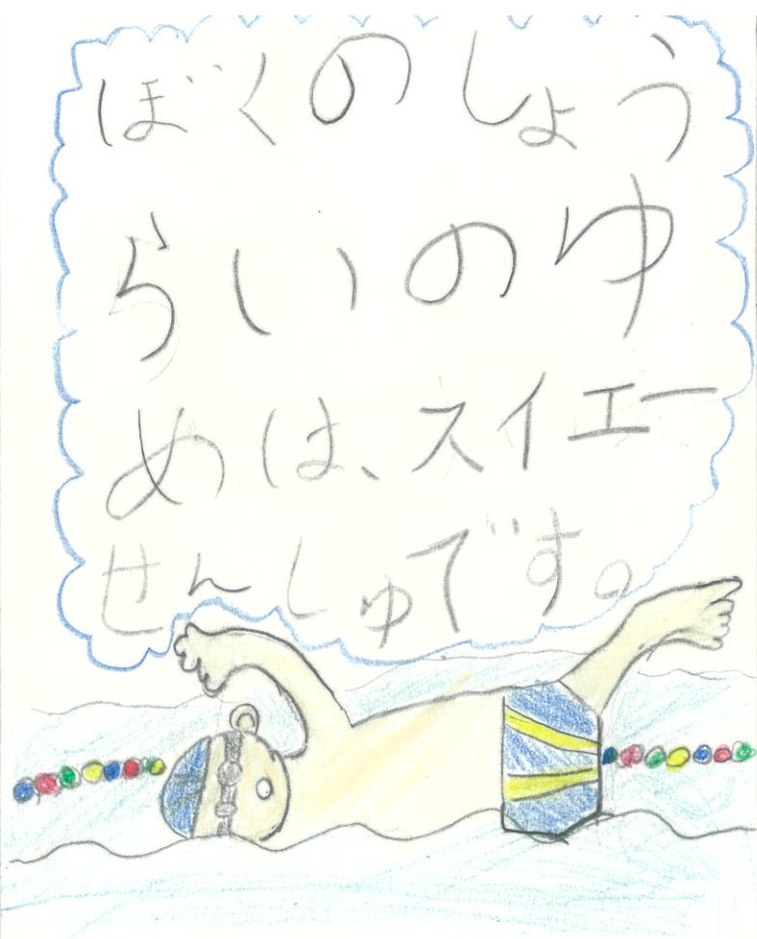 ぼくのしょう
らいのゆ
めは、スイエー
せんしゅです。